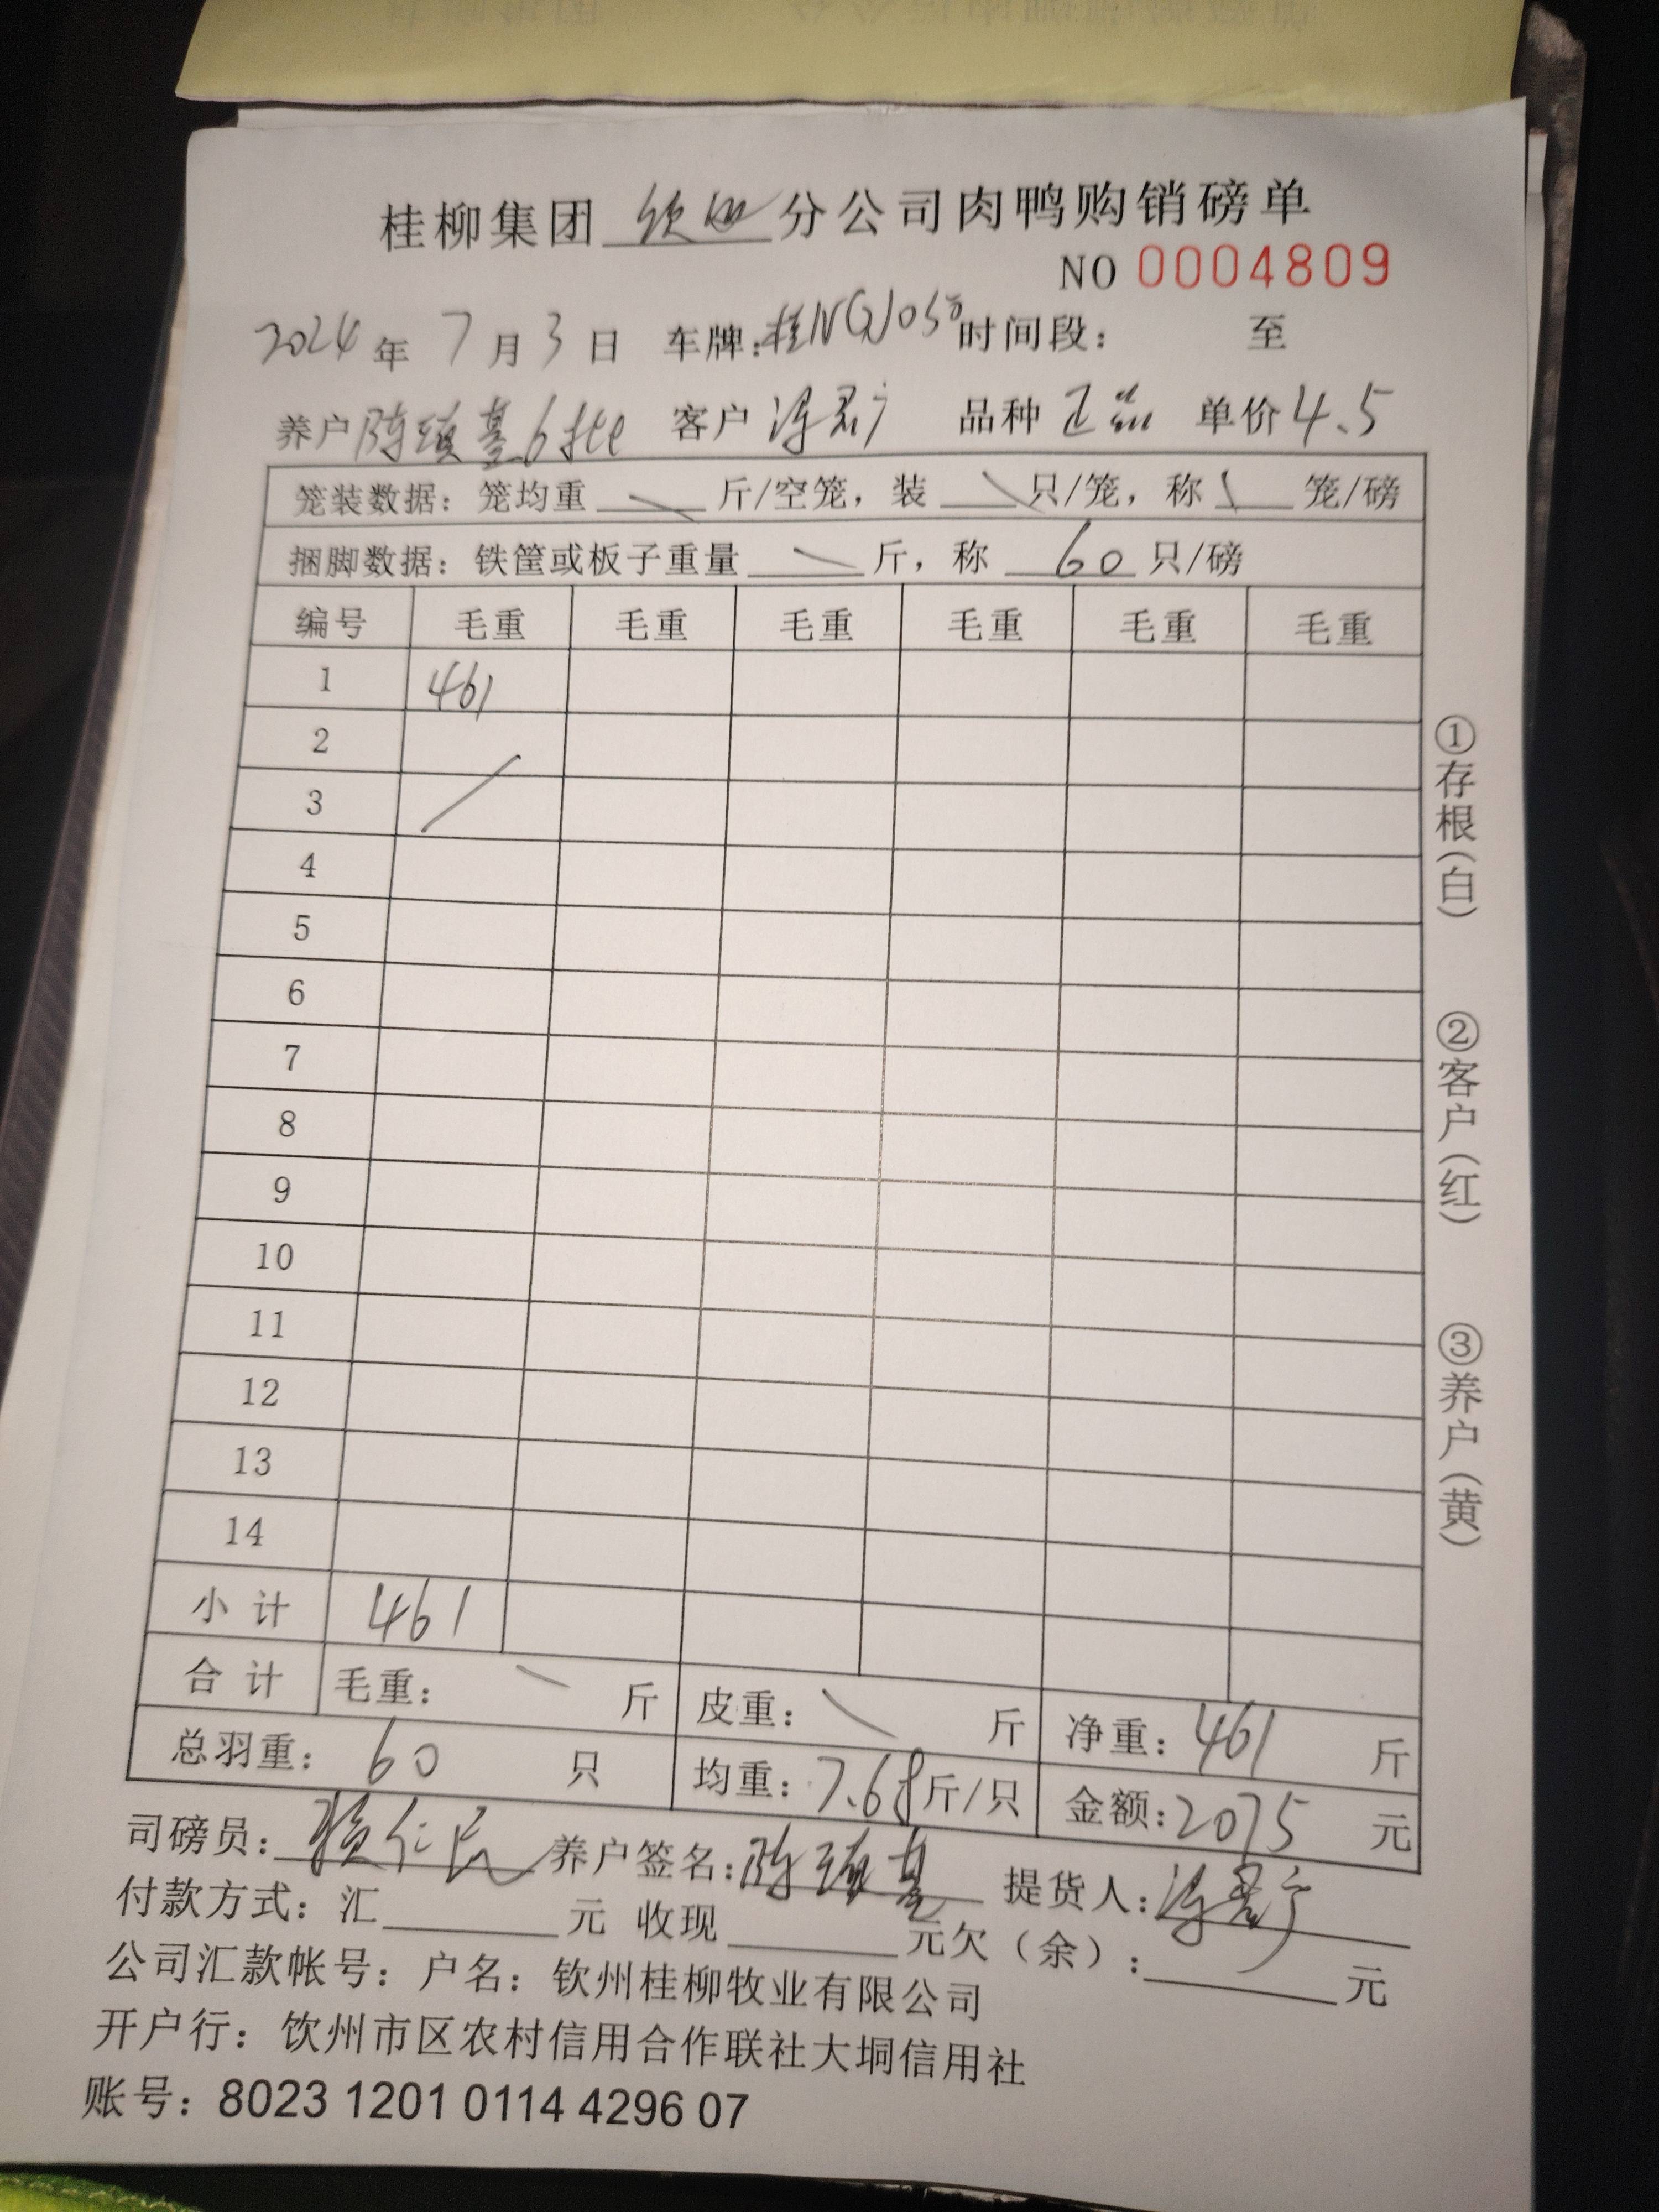 桂柳集团 钦州 分公司肉鸭购销磅单
NO 0004809
2024 年 7 月 3 日 车牌: 时间段: 至
养户 6批 客户 品种 正品 单价 4.5
笼装数据: 笼均重 斤/空笼, 装 只/笼, 称 笼/磅
捆脚数据: 铁筐或板子重量 斤, 称 60 只/磅
编号 毛重 毛重 毛重 毛重 毛重 毛重
1 461
2
3
4
5
6
7
8
9
10
11
12
13
14
小计 461
合计 毛重: 斤 皮重: 斤 净重: 461 斤
总羽重: 60 只 均重: 7.68 斤/只 金额: 2075 元
司磅员: 养户签名: 提货人:
付款方式: 汇 元 收现 元 欠(余): 元
公司汇款帐号: 户名: 钦州桂柳牧业有限公司
开户行: 饮州市区农村信用合作联社大垌信用社
账号: 8023 1201 0114 4296 07
①存根(白)
②客户(红)
③养户(黄)